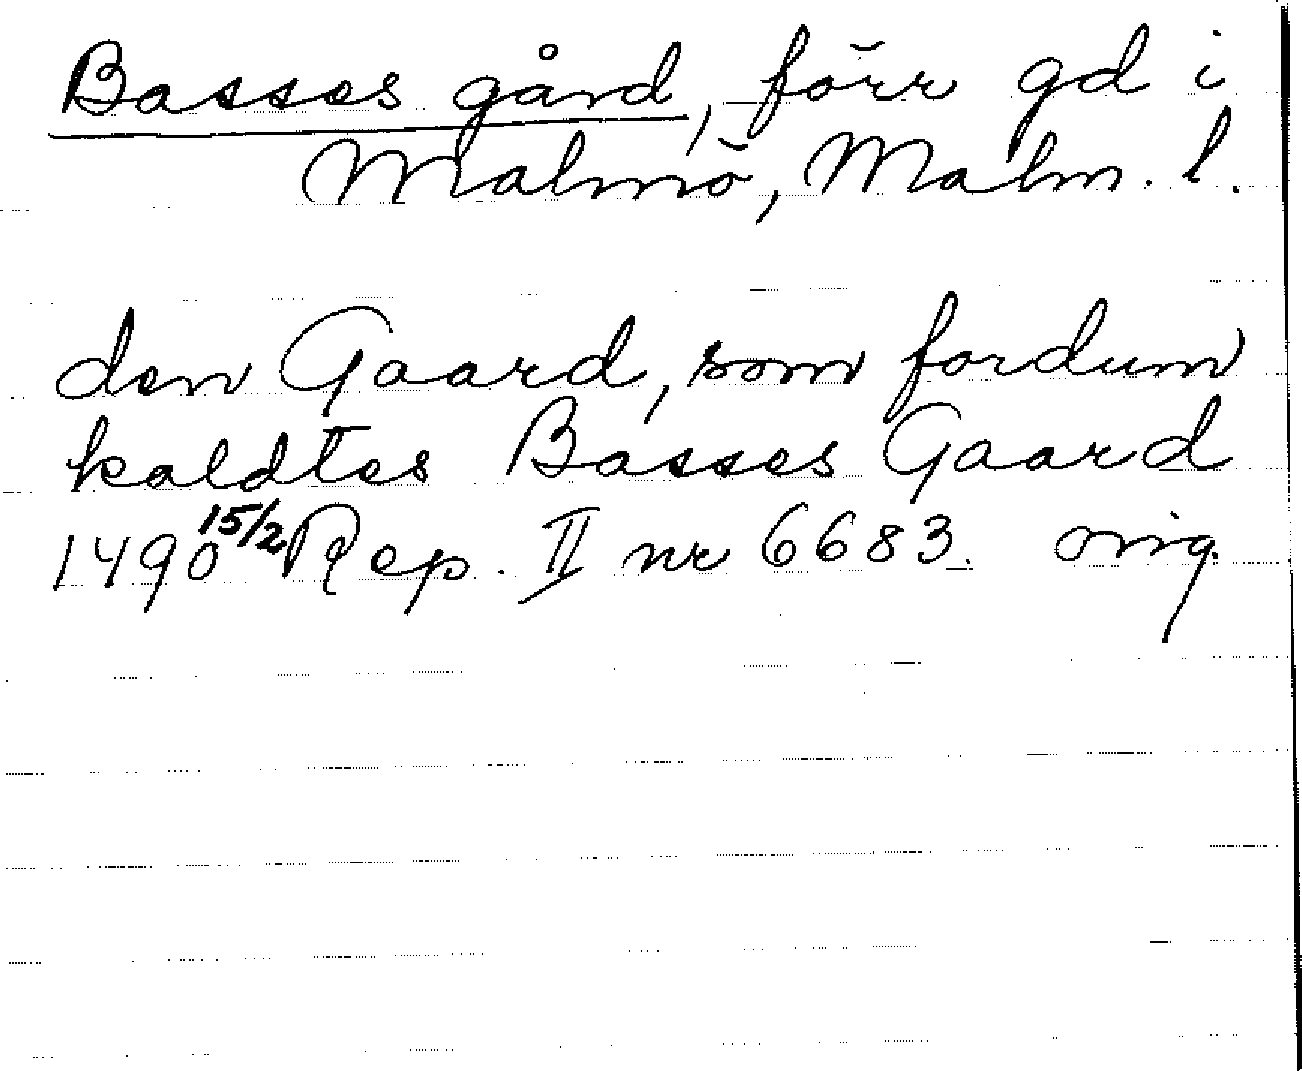 Basses gård, förr gd i
Malmö, Malm. l.
den Gaard, som fordum
kaldtes Basses Gaard
1490 15/2 Rep. II nr 6683. orig.